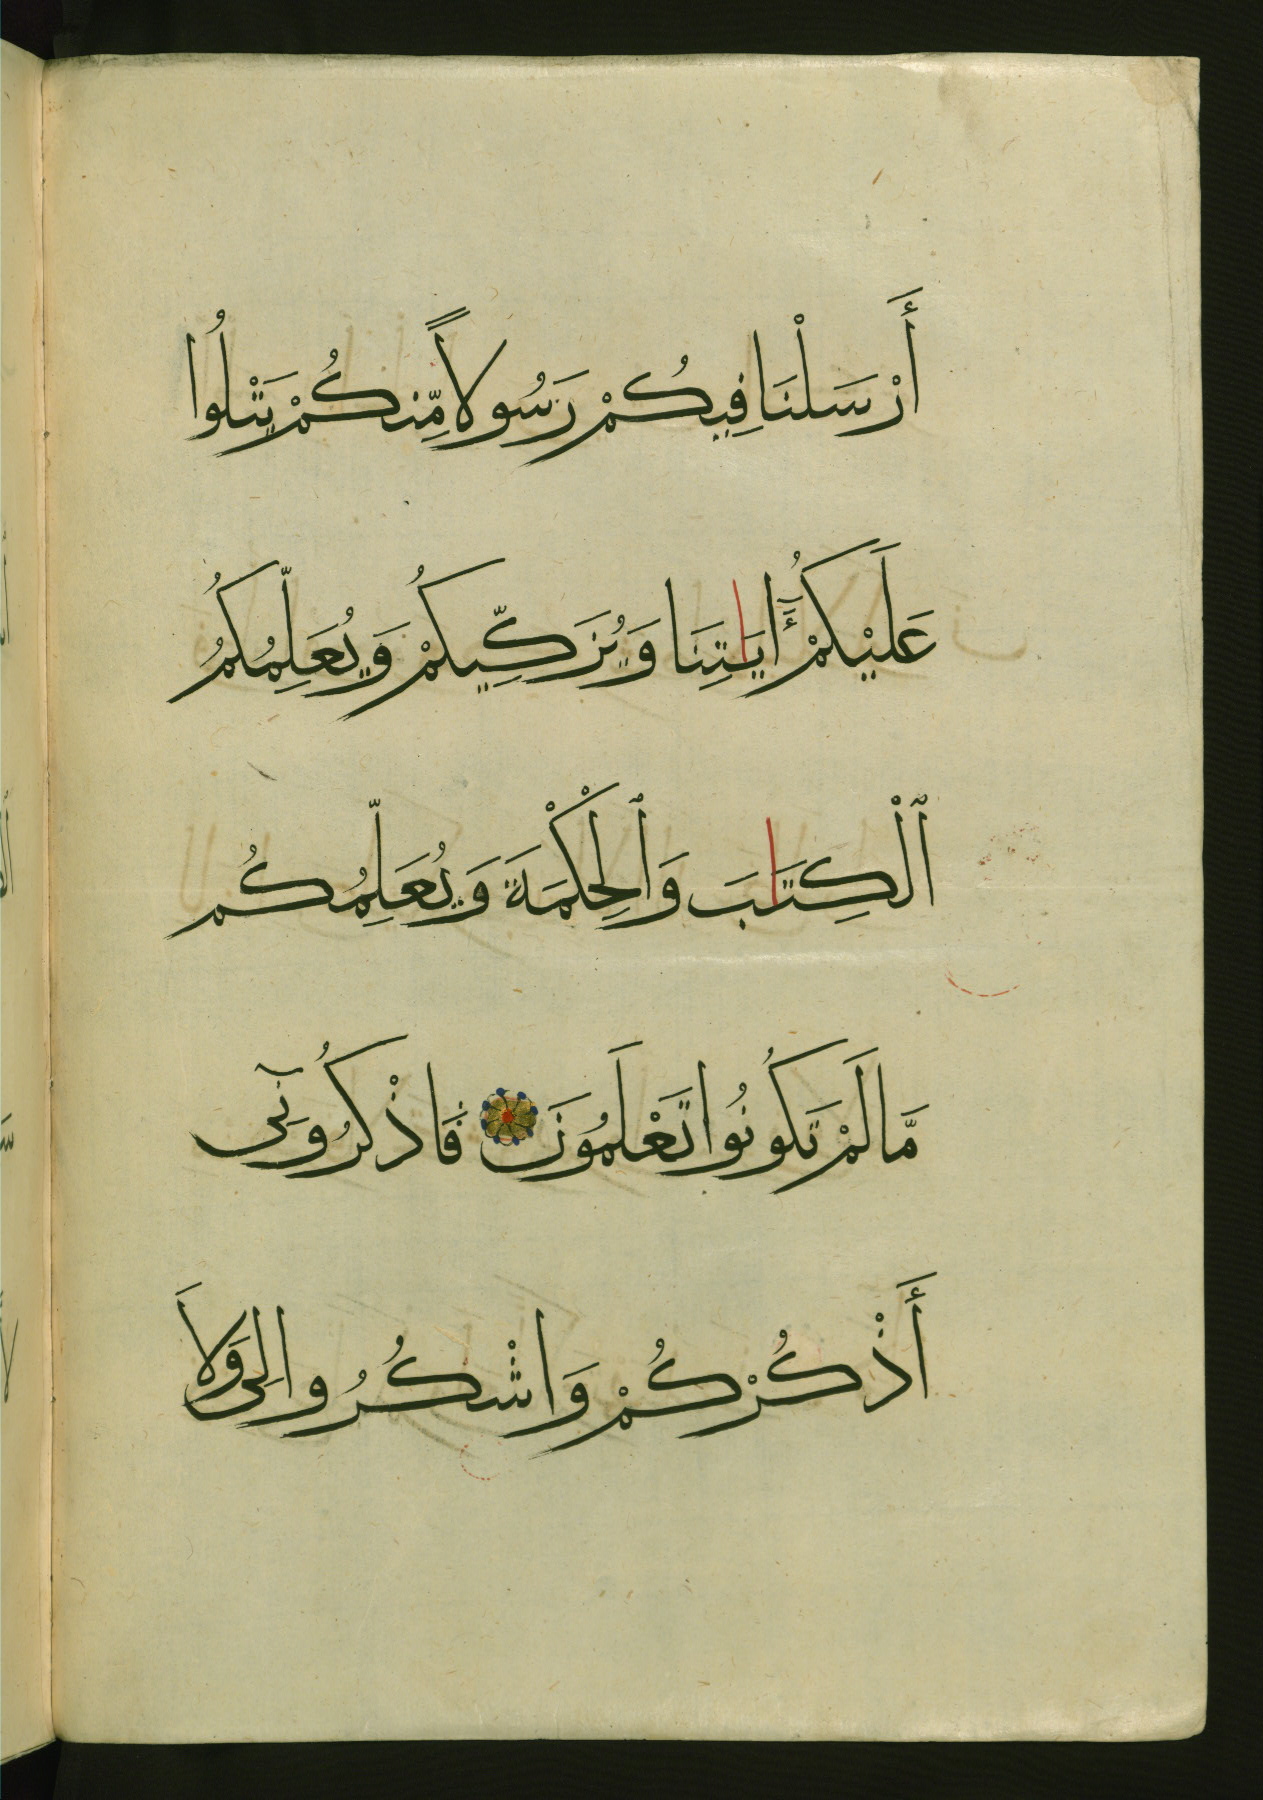 أَرْسَلْنَا فِيكُمْ رَسُولاً مِّنكُمْ يَتْلُوا
عَلَيْكُمُۥٓ ءَايَاتِنَا وَيُزَكِّيكُمْ وَيُعَلِّمُكُمُ
ٱلْكِتَابَ وَٱلْحِكْمَةَ وَيُعَلِّمُكُم
مَّا لَمْ تَكُونُوا تَعْلَمُونَ فَاذْكُرُونِىٓ
أَذْكُرْكُمْ وَاشْكُرُوا لِى وَلاَ